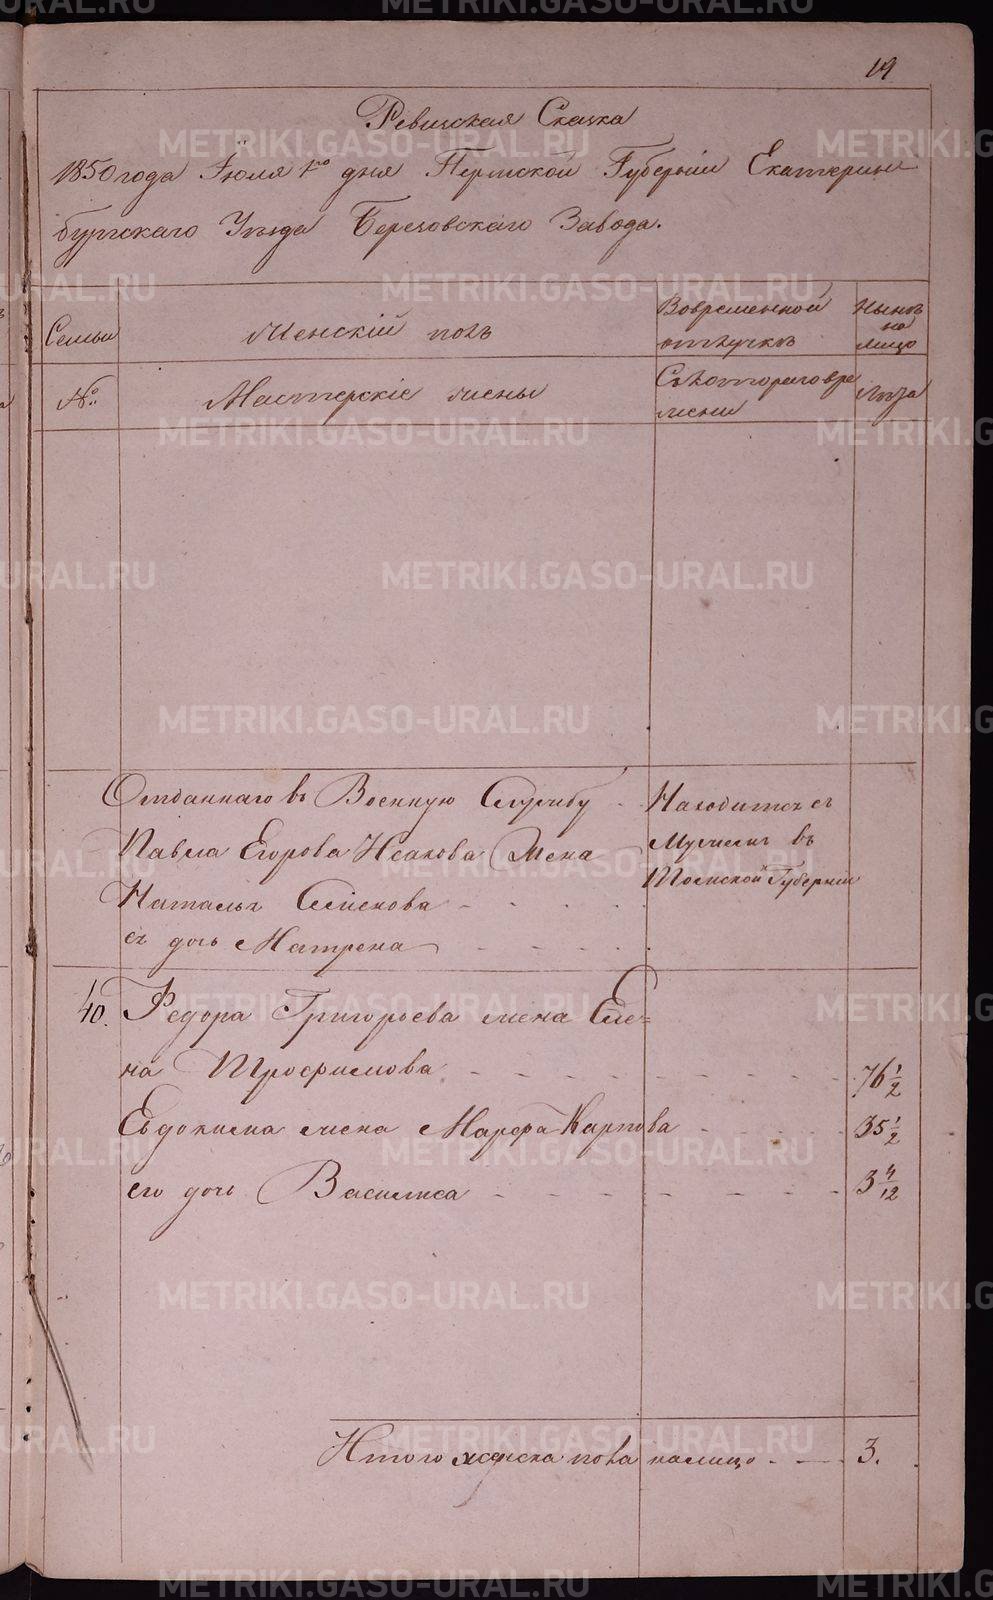 19
Ревизская Сказка
1850 года Іюля 1го дня Пермской Губерніи Екатерин
бургскаго Уѣзда Березовскаго Завода.
Семьи
Женскій полъ
Вовременной
отлучкѣ
Нынѣ
на
лицо
№
Мастерскіе жены
Съкотораговре
мени
Лѣта
Отданнаго въ Военную Службу
Павла Егорова Исакова Жена
Наталья Семенова
ея дочь Матрена
Находится съ
Мужемъ въ
Томской Губерніи
40. Федора Григорьева жена Еле=
на Трофимова 76 1/2
Евдокима жена Марфа Карпова 35 1/2
его дочь Василиса 3 4/12
Итого женска пола налицо 3.
METRIKI.GASO-URAL.RU